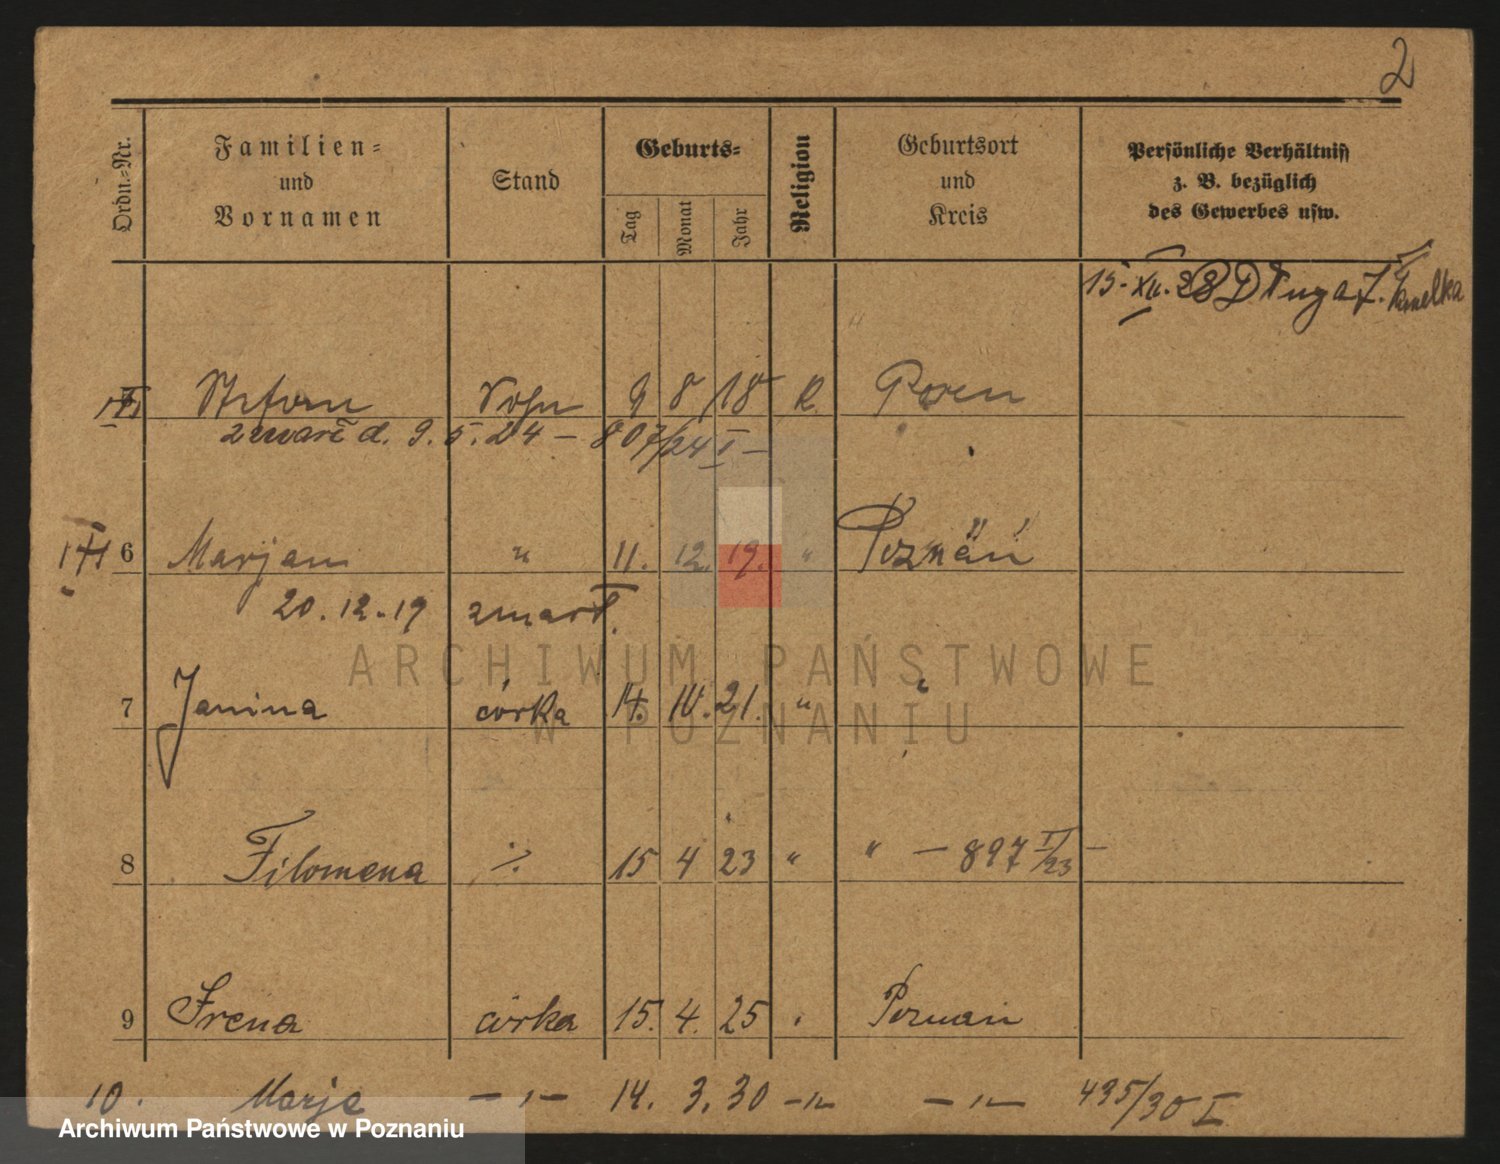 2
Ordn.-Nr.
Familien-
und
Vornamen
Stand
Geburts-
Tag
Monat
Jahr
Religion
Geburtsort
und
Kreis
Persönliche Verhältniss
z. B. bezüglich
des Gewerbes usw.
15. XII. 28 Długa 7.
Stefan Sohn 9 8 18 R. Posen
d. 9. 5. 24 - 807/24 I -
6 Marjan " 11. 12. 19. " Poznań
20.12.19 zmarł.
7 Janina córka 14. 10. 21. " "
8 Filomena ./. 15 4 23 " " - 897 I/23 -
9 Irena córka 15. 4. 25 " Poznań
10. Marja - " - 14. 3. 30 - " - - " - 435/30 I
ARCHIWUM PAŃSTWOWE
W POZNANIU
Archiwum Państwowe w Poznaniu